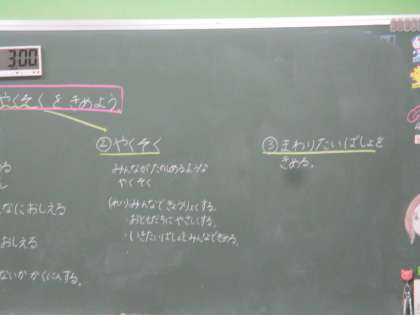 3:00
やくそくをきめよう
②やくそく
みんながたのしめるような
やくそく
(れい)みんなできょうりょくする。
おともだちにやさしくする。
・いきたいばしょをみんなできめる。
③まわりたいばしょを
きめる。
る
ん
なにおしえる
おしえる
ないかかくにんする。